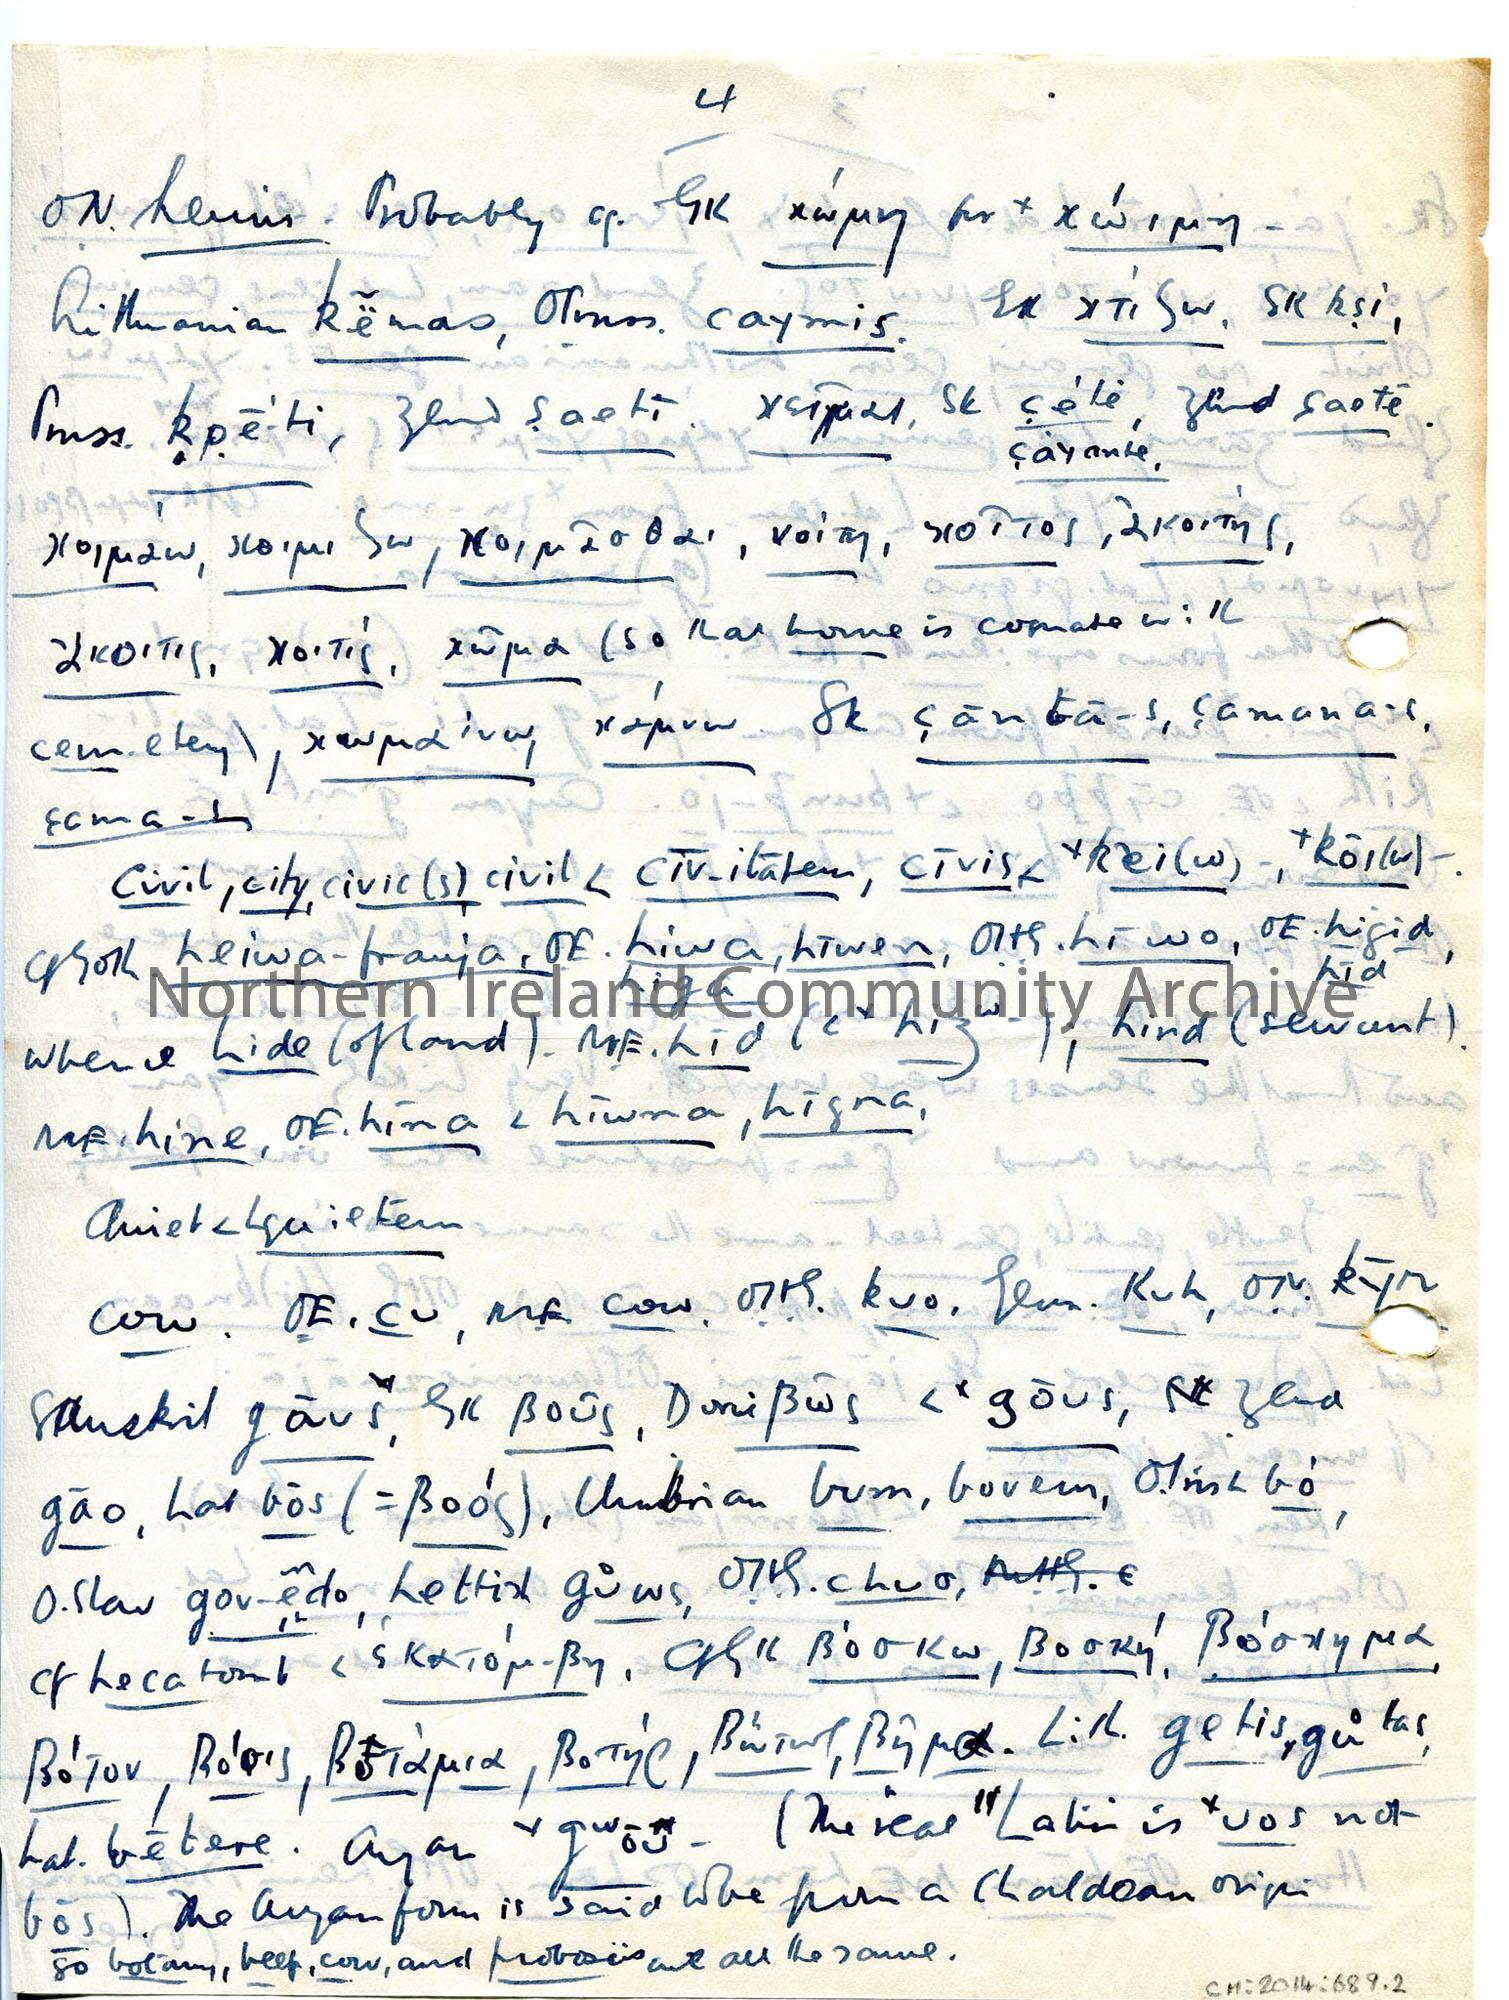 4
ON. heimr. Probably cp. GK κώμη for + κώιμη -
Lithuanian kẽmas, OPruss. caymis. GK κτίζω, SK kṣi,
Pruss. kṣē-ti, Zend ṣaeti. κεῖμαι, SK çétē, Zend ṣaetē.
çáyantē,
κοιμάω, κοιμίζω, κοιμᾶσθαι, κοίτη, κοῖτος, ἀκοίτης,
ἄκοιτις, κοιτίς, κῶμα (so that home is cognate with
cemetery), κωμαίνω, κάμνω. Sk çānta-s, çamana-s,
çama-s
Civil, city, civic(s) civil < cīvitātem, cīvis < +kei(w)-, +kōi(w)-.
cf Goth heiwa-frauja, OE. hiwa, hīwen, OHG. hīwo, OE. higid,
higa hīd
whence hide (of land). ME. hīd (<+ hiʒw-), hind (servant).
ME. hine, OE. hīna < hīwna, hīgna.
Quiet < L quietem
Cow. OE. cu, ME cow. OHG. kuo, Germ. Kuh, ON. kȳr
Sanskrit gāuš, GK βοῦς, Doric βῶς <+ gōus, Zend
gāo, Lat bōs (= βοός), Umbrian bum, bovem, O.Irish bó,
O.Slav gov-ędo, Lettish gůws, OHG. chuo,
cf hecatomb < ἑκατόμ-βη. Cf GK βόσκω, βοσκή, βόσκημα
βότον, βόσις, βοτάμια, βοτήρ, βώτωρ, βῆμα. Lith. getis, gůtas,
Lat. bētere. Aryan + gwōu- (The real Latin is +uos not
bōs). The Aryan form is said to be from a Chaldean origin
So botany, beef, cow, and proboscis are all the same.
CM:2014:689.2
Northern Ireland Community Archive